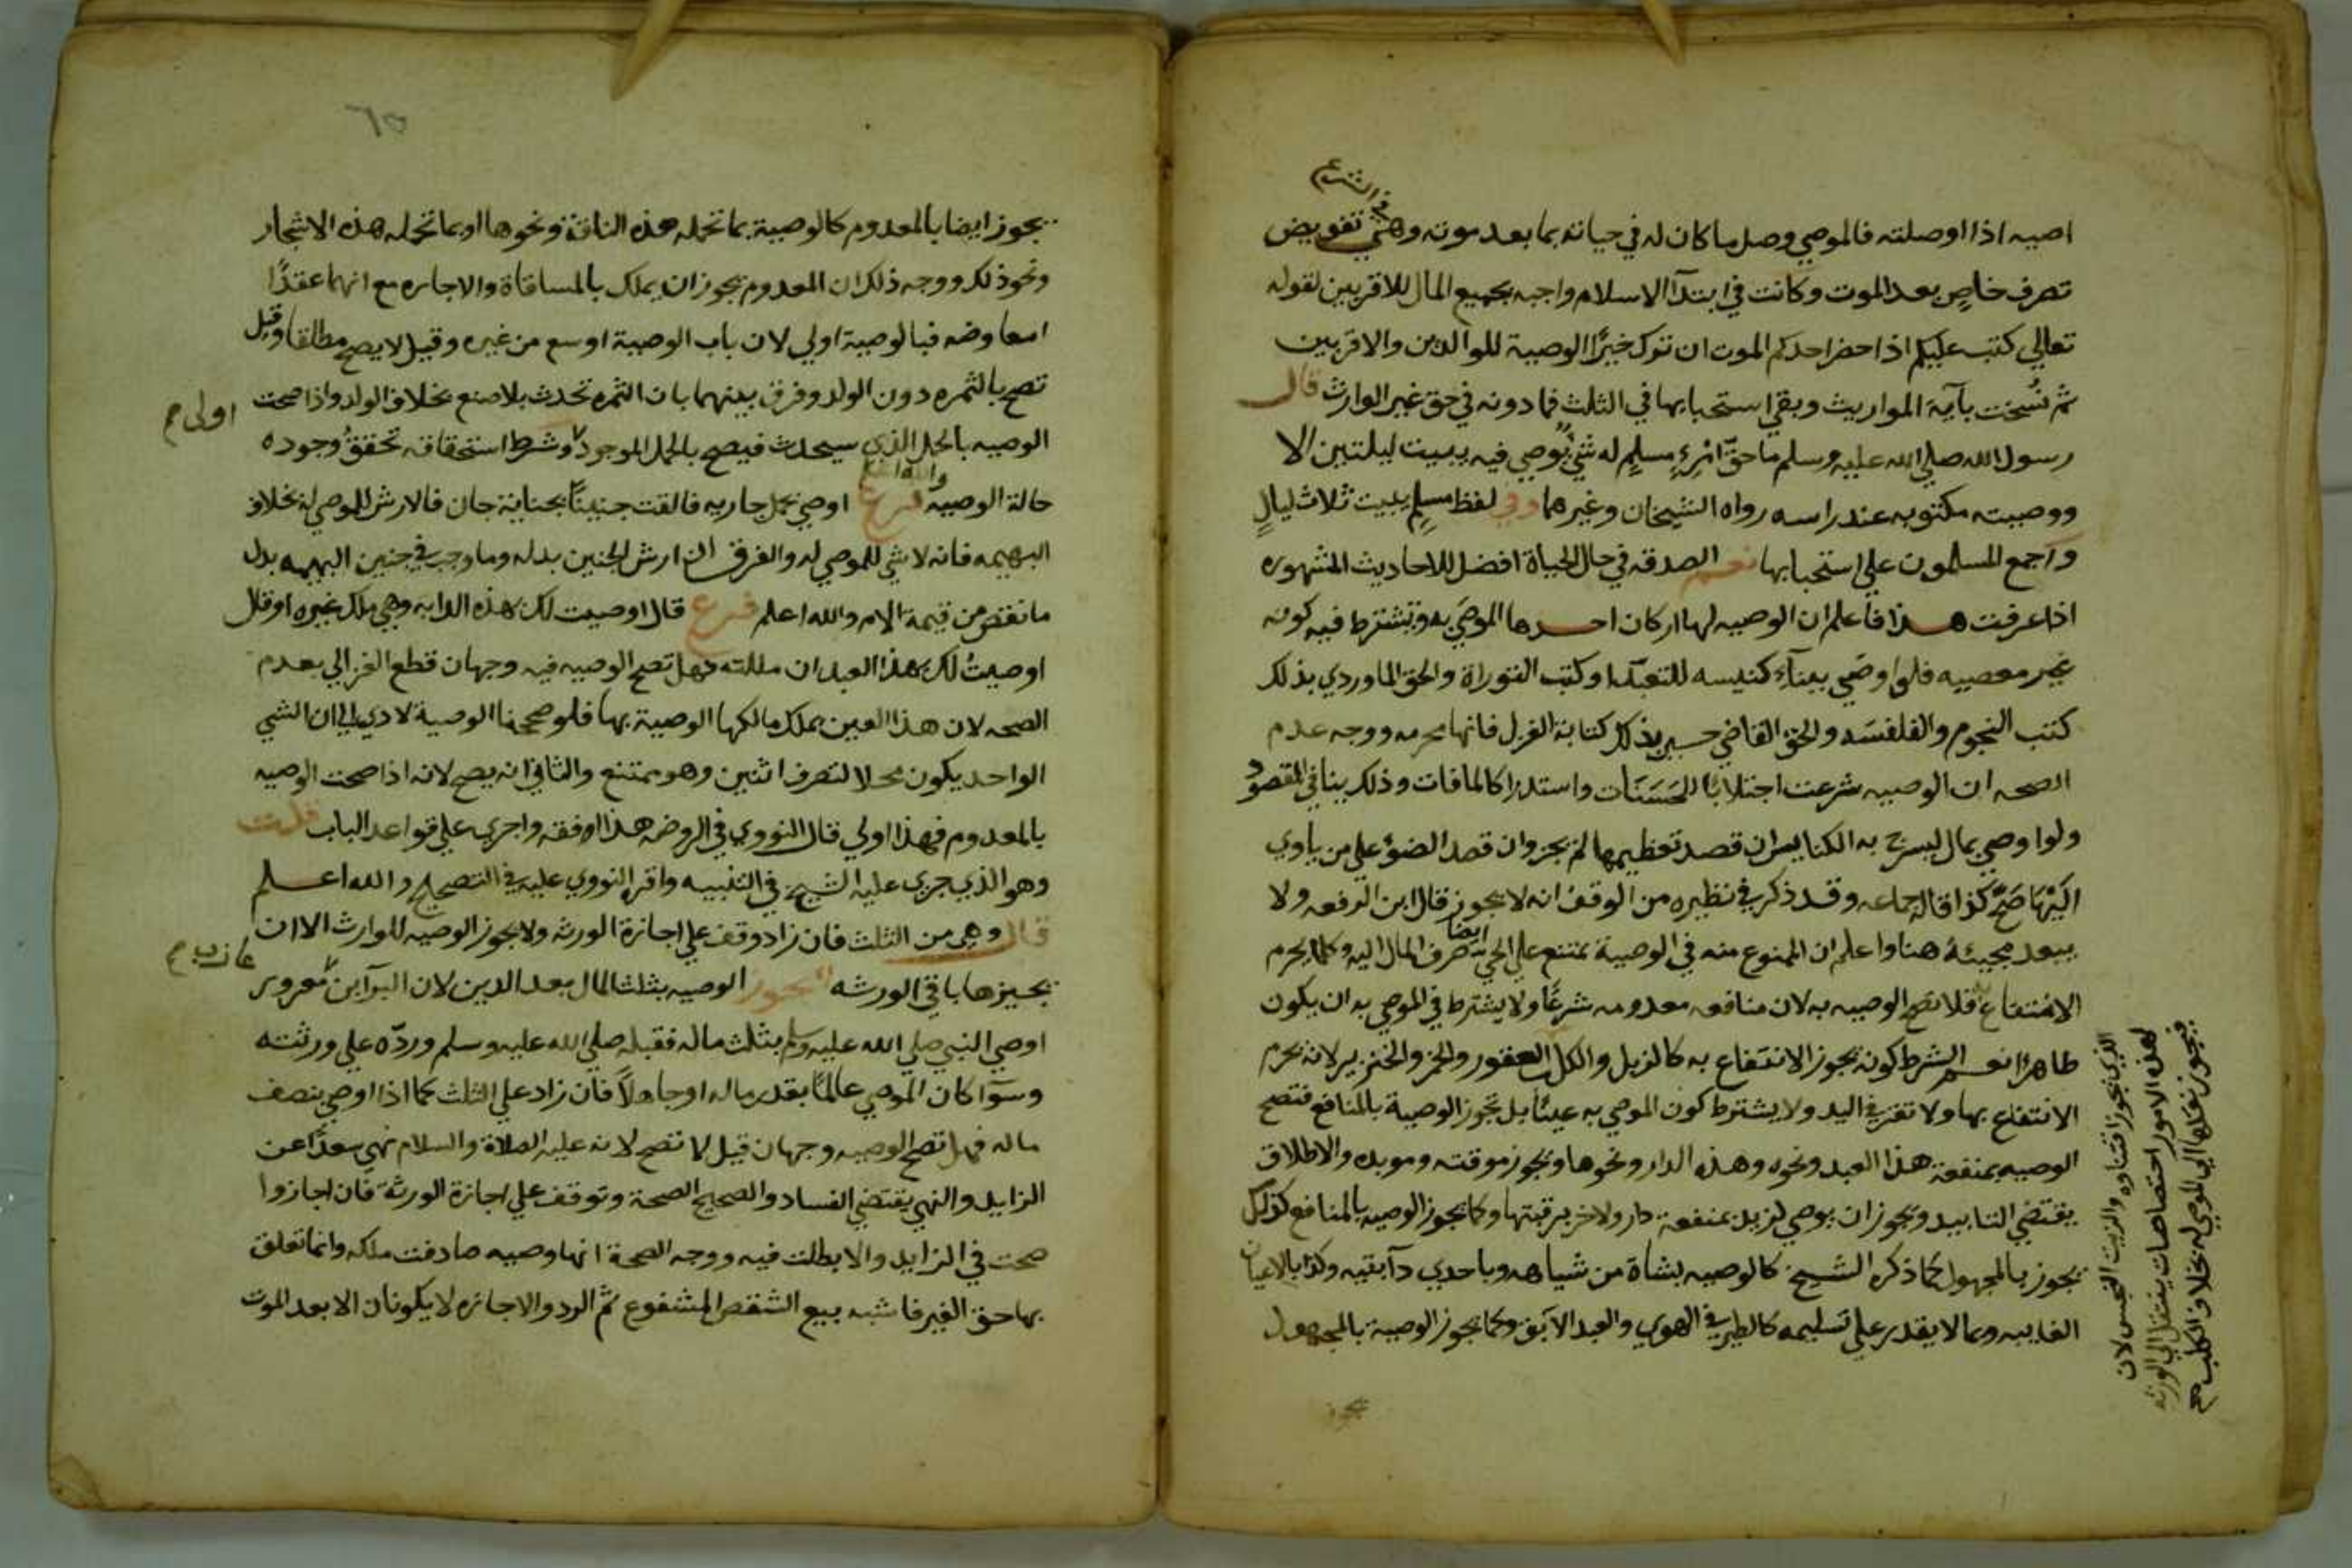 في الشرع
اصيه اذا اوصلته فالموصي وصل ما كان له في حياته بما بعد موته وهي تفويض
تصرف خاص بعد الموت وكانت في ابتدآ الاسلام واجبه بجميع المال للاقربين لقوله
تعالي كتب عليكم اذا حضر احدكم الموت ان ترك خيرًا الوصية للوالدين والاقربين
ثم نُسخت بآية المواريث وبقي استحبابها في الثلث فما دونه في حق غير الوارث قال
رسول الله صلي الله عليه وسلم ما حقّ امْرِءٍ مسلمٍ له شي يُوصي فيه يبيت ليلتين الا
ووصيته مكتوبه عند راسه رواه الشيخان وغيرهما وفي لفظ مسلم يبيت ثلاث ليالٍ
واجمع المسلمون علي استحبابها نعم الصدقه في حال الحياة افضل للاحاديث المشهوره
اذا عرفت هذا فاعلم ان الوصيه لها اركان احدها الموصَي به ويشترط فيه كونه
غير معصيه فلو اوصَي ببنآء كنيسه للتعبّد او كتب التوراة والحق الماوردي بذلك
كتب النجوم والفلفسَه والحق القاضي حسين بذلك كتابة الغزل فانها محرمه ووجه عدم
الصحه ان الوصيه شرعت اجتلابًا للحَسَنَات واستدراكا لما فات وذلك ينافي المقصود
ولو اوصي بمال ليسرج به الكنايس ان قصد تعظيمها لم يجز وان قصد الضوء علي من ياوي
اليَهَا صَحَّ كذا قاله جماعه وقد ذكر في نظيره من الوقف انه لا يجوز قال ابن الرفعه ولا
يبعد مجيئهُ هنا واعلم ان الممنوع منه في الوصية يمتنع علي الحي ايضا صرف المال اليه وكلما يحرم
الانتفاع به فلا تصح الوصيه به لان منافعه معدومه شرعًا ولا يشترط في الموصي به ان يكون
طاهرا نعم الشرط كونه يجوز الانتفاع به كالزبل والكلب العقور والخمر والخنزير لانه يحرم
الانتفاع بها ولا تقر في اليد ولا يشترط كون الموصي به عينًا بل تجوز الوصية بالمنافع فتصح
الوصيه بمنفعة هذا العبد ونحوه وهذه الدار ونحوها ويجوز موقته وموبده والاطلاق
يقتضي التابيد ويجوز ان يوصي لزيد بمنفعة دار ولاخر برقبتها وكما تجوز الوصيه بالمنافع كذلك
يجوز بالمجهول كما ذكره الشيخ كالوصيه بشاة من شياهه وباحدي دآبتيه وكذا بالاعيان
الغايبه وبما لا يقدر علي تسليمه كالطير في الهوي والعبد الآبق وكما يجوز الوصية بالمجهول
يجوز
الذي يجوز اقتناوه والزيت النجس لان
هذه الامور اختصاصات ينتقل الي الورثه
فيجوز نقلها الي الموصي له بخلاف الكلب صح
٦٥
يجوز ايضا بالمعدوم كالوصية بما تحمله هذه الناقة ونحوها او بما تحمله هذه الاشجار
ونحو ذلك ووجه ذلك ان المعدوم يجوز ان يملك بالمساقاة والاجاره مع انهما عقدًا
امعاوضه فبالوصية اولي لان باب الوصية اوسع من غيره وقيل لا يصح مطلقا وقيل
تصح بالثمره دون الولد وفرق بينهما بان الثمره تحدث بلا صنع بخلاف الولد واذا صحت
اولى م
الوصيه بالحمل الذي سيحدث فيصح بالحمل الموجود وشرط استحقاقه تحققُ وجوده
حالة الوصيه والله اعلم فرع اوصي بحمل جاريه فالقت جنينًا بجناية جان فالارش للموصي له بخلاف
البهيمه فانه لا شي للموصي له والفرق ان ارش الجنين بدله وما وجب في جنين البهيمه بدل
ما نقص من قيمة الام والله اعلم فرع قال اوصيت لك بهذه الدابه وهي ملك غيره او قال
اوصيتُ لك بهذا العبد ان ملكته فهل تصح الوصيه فيه وجهان قطع الغزالي بعدم
الصحه لان هذا العين يملك مالكها الوصية بها فلو صححنا الوصية لادي الي ان الشي
الواحد يكون محلا لتصرف اثنين وهو ممتنع والثاني انه يصح لانه اذا صحت الوصيه
بالمعدوم فهذا اولي قال النووي في الروضه هذا افقه واجري علي قواعد الباب قلت
وهو الذي جري عليه الشيخ في التنبيه واقره النووي عليه في التصحيح والله اعلم
قال وهي من الثلث فان زاد وقف علي اجازة الورثه ولا يجوز الوصيه للوارث الا ان
يجيزها باقي الورثه تجوز الوصيه بثلث المال بعد الدين لان البرآ ابن معرور
عازب م
اوصي النبي صلي الله عليه وسلم بثلث ماله فقبله صلي الله عليه وسلم وردّه علي ورثته
وسوآ كان الموصي عالمًا بقدر ماله او جاهلاً فان زاد علي الثلث كما اذا اوصي بنصف
ماله فهل تصح الوصيه وجهان قيل لا تصح لانه عليه الصلاة والسلام نهي سعدًا عن
الزايد والنهي يقتضي الفساد والصحيح الصحة وتوقف علي اجازة الورثة فان اجازوا
صحت في الزايد والا بطلت فيه ووجه الصحة انها وصيه صادفت ملكه وانما تعلق
بها حق الغير فاشبه بيع الشقص المشفوع ثم الرد والاجازه لا يكونان الا بعد الموت